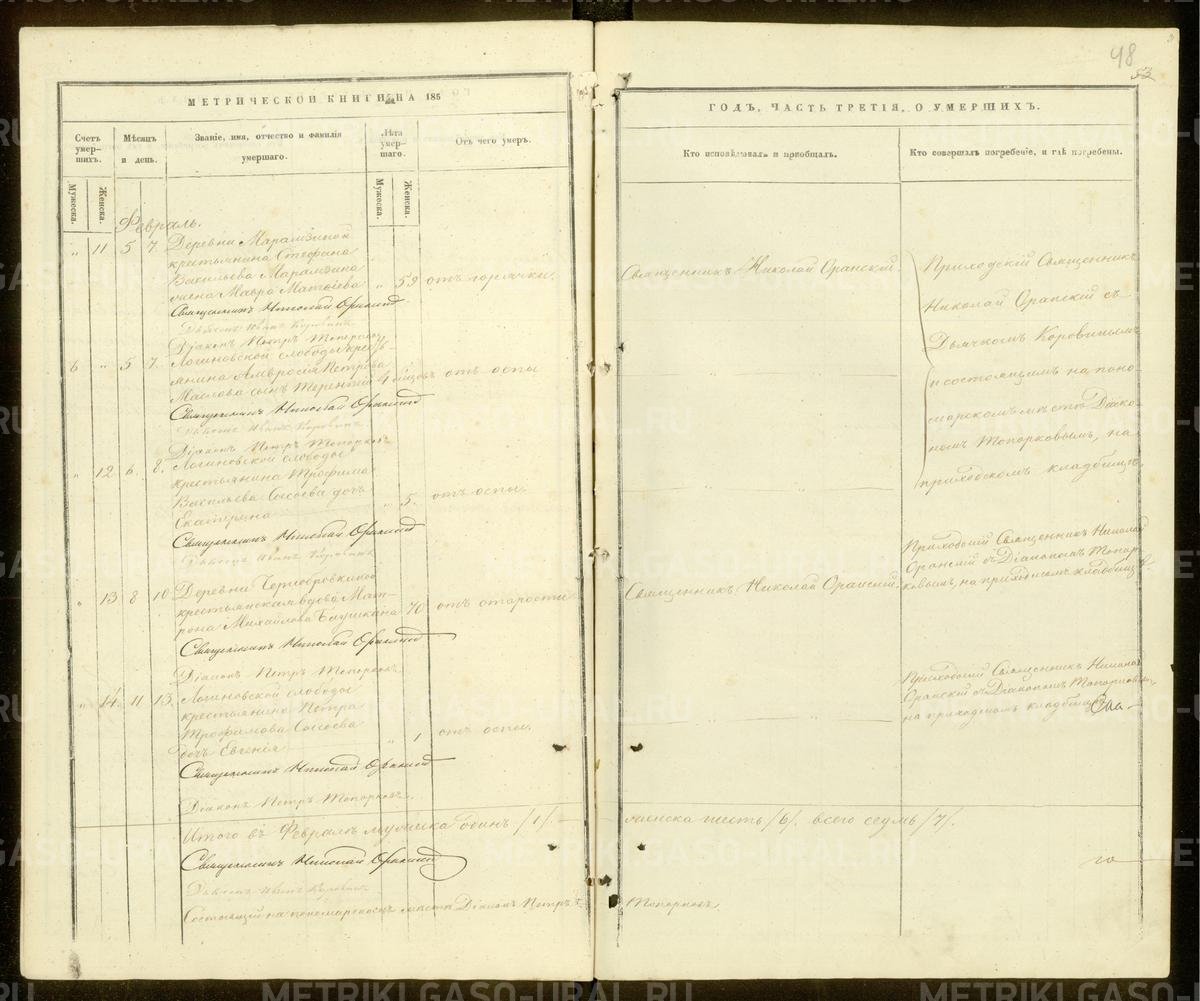 48
53
МЕТРИЧЕСКОЙ КНИГИ НА 185
ГОДЪ, ЧАСТЬ ТРЕТІЯ, О УМЕРШИХЪ.
Счетъ умер-
шихъ.
Мѣсяцъ
и день.
Званіе, имя, отчество и фамилія
умершаго.
Лѣта
умер-
шаго.
Отъ чего умеръ.
Кто исповѣдывалъ и пріобщалъ.
Кто совершалъ погребеніе, и гдѣ погребены.
Мужеска.
Женска.
Мужеска.
Женска.
Февраль.
„ 11 5 7. Деревни Марамзиной
крестьянина Стефана
Васильева Марамзина
жена Мавра Матвѣева „ 59 отъ горячки.
Священникъ Николай Оранскій.
Священникъ Николай Оранскій
Дьячекъ Иванъ Коровинъ
Діаконъ Петръ Топорковъ
6 „ 5 7. Логиновской слободы кресть-
янина Амвросія Петрова
Маслова сынъ Терентій 4 мѣсцовъ отъ оспы
Священникъ Николай Оранскій
Дьячекъ Иванъ Коровинъ
Діаконъ Петръ Топорковъ
„ 12 6. 8. Логиновской слободы
крестьянина Трофима
Васильева Сысоева дочь
Екатерина „ 5. отъ оспы.
Священникъ Николай Оранскій
Дьячекъ Иванъ Коровинъ
Приходскій Священникъ
Николай Оранскій съ
Дьячкомъ Коровинымъ
и состоящимъ на поно-
марскомъ мѣстѣ Діако-
номъ Топорковымъ, на
приходскомъ кладбищѣ.
„ 13 8 10 Деревни
крестьянская вдова Мат-
рона Михайлова 70 отъ старости
Священникъ Николай Оранскій
Діаконъ Петръ Топорковъ
Священникъ Николай Оранскій.
Приходскій Священникъ Николай
Оранскій съ Діакономъ Топор-
ковымъ, на приходскомъ кладбищѣ.
„ 14. 11 13. Логиновской слободы
крестьянина Петра
Трофимова Сысоева
дочь Евгенія „ 1 отъ оспы.
Священникъ Николай Оранскій
Діаконъ Петръ Топорковъ.
Приходскій Священникъ Николай
Оранскій съ Діакономъ Топорковымъ,
на приходскомъ кладбищѣ.
Итого въ Февралѣ мужеска одинъ /1/. женска шесть /6/. всего седмь /7/.
Священникъ Николай Оранскій
Дьячекъ Иванъ Коровинъ
Состоящій на пономарскомъ мѣстѣ Діаконъ Петръ Топорковъ.
го
METRIKI.GASO-URAL.RU